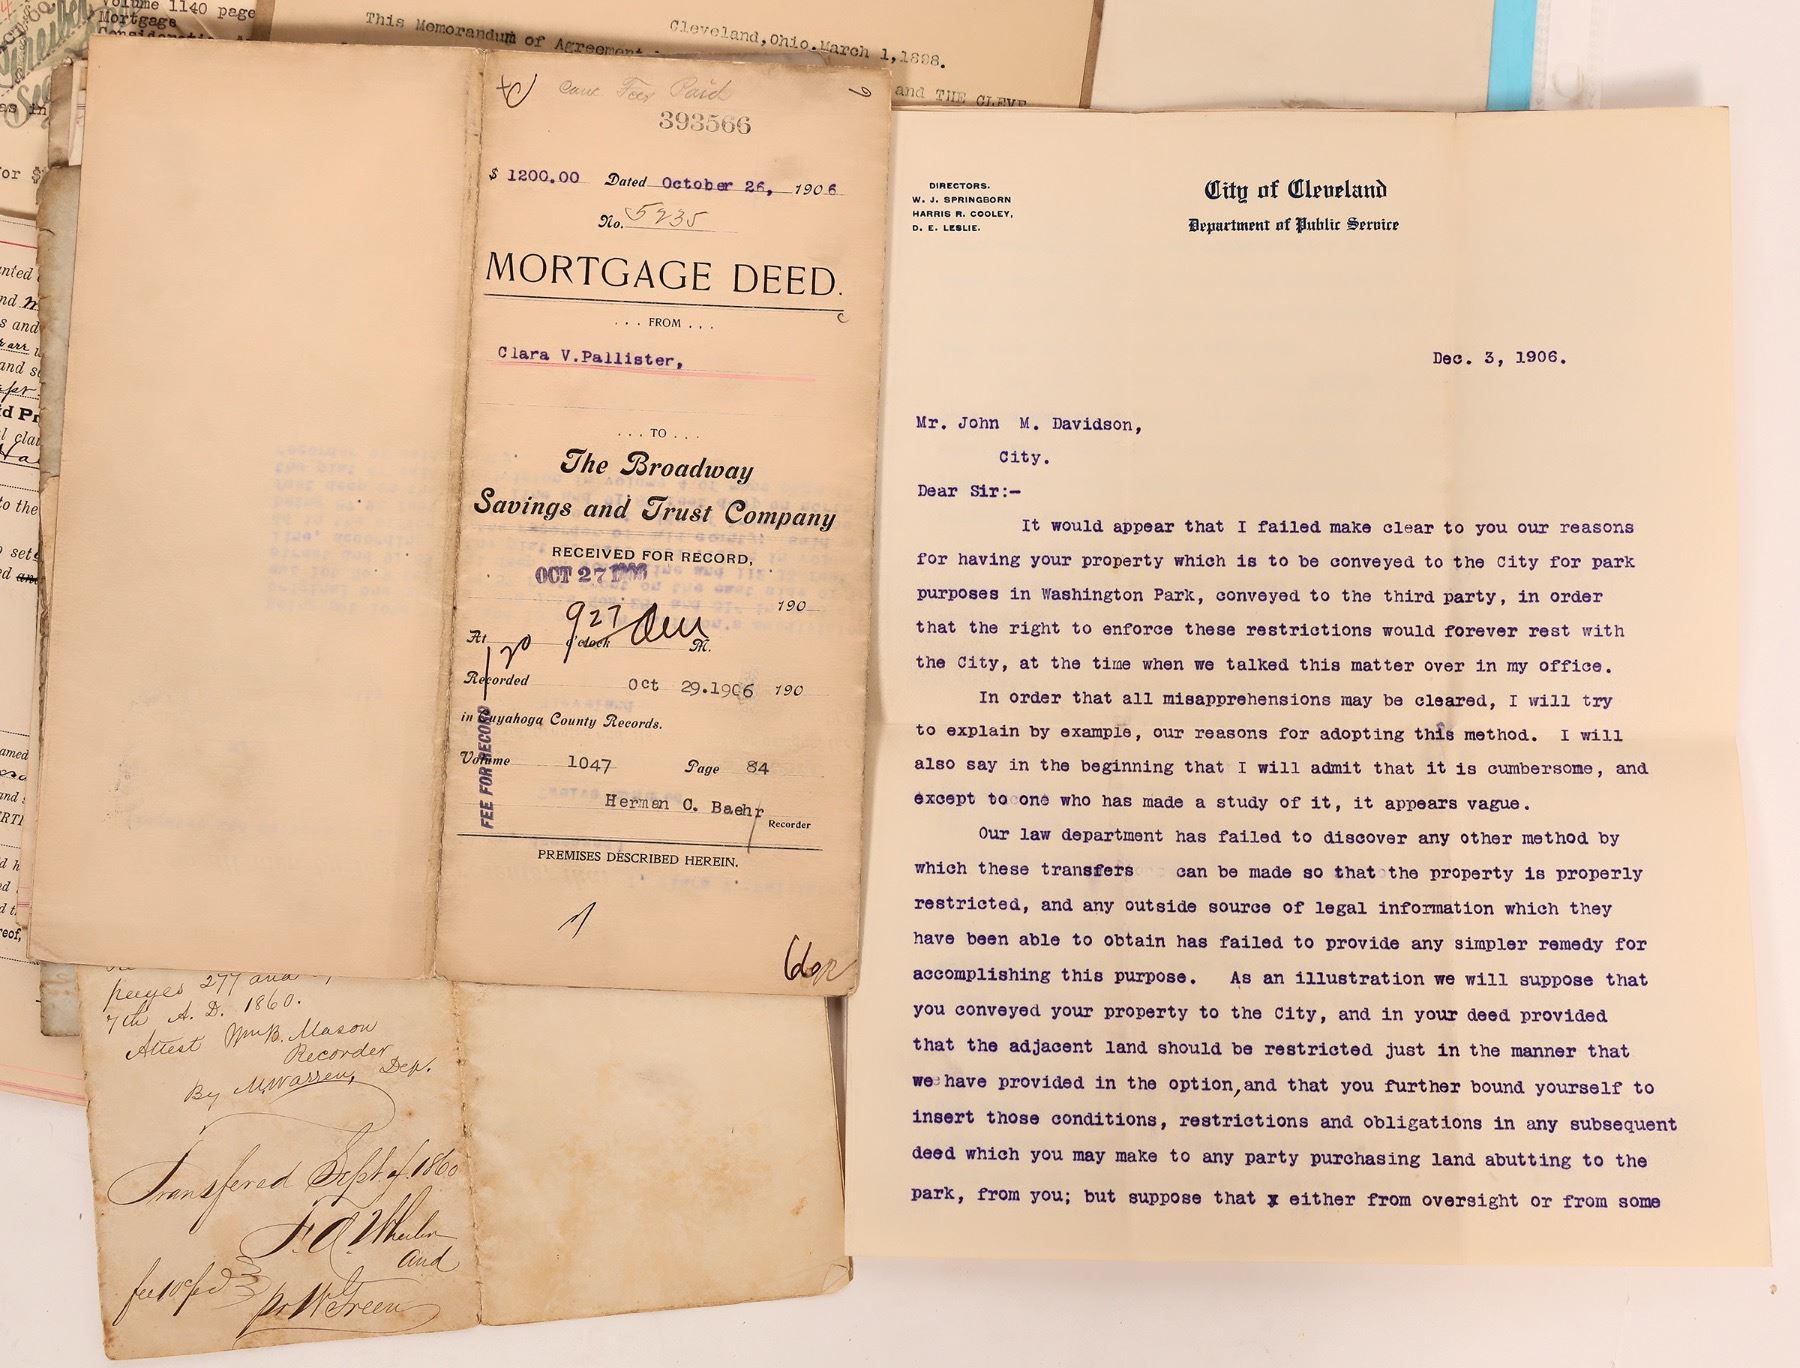 Volume 1140 page
Mortgage
This Memorandum of Agreement
Cleveland, Ohio. March 1, 1898.
and THE CLEVE
393566
$ 1200.00 Dated October 26, 1906
No. 5235
MORTGAGE DEED.
... FROM ...
Clara V. Pallister,
... TO ...
The Broadway
Savings and Trust Company
RECEIVED FOR RECORD,
OCT 27 1906
190
At 927 o'clock M.
Recorded Oct 29.1906 190
in Cuyahoga County Records.
Volume 1047 Page 84
FEE FOR RECORD
Herman C. Baehr
Recorder
PREMISES DESCRIBED HEREIN.
pages 277 and
7th A. D. 1860.
Attest Wm B. Mason
Recorder
By M. Warren, Dep.
Transfered Sept 7 1860
and
DIRECTORS.
W. J. SPRINGBORN
HARRIS R. COOLEY,
D. E. LESLIE.
City of Cleveland
Department of Public Service
Dec. 3, 1906.
Mr. John M. Davidson,
City.
Dear Sir:-
It would appear that I failed make clear to you our reasons
for having your property which is to be conveyed to the City for park
purposes in Washington Park, conveyed to the third party, in order
that the right to enforce these restrictions would forever rest with
the City, at the time when we talked this matter over in my office.
In order that all misapprehensions may be cleared, I will try
to explain by example, our reasons for adopting this method. I will
also say in the beginning that I will admit that it is cumbersome, and
except to one who has made a study of it, it appears vague.
Our law department has failed to discover any other method by
which these transfers can be made so that the property is properly
restricted, and any outside source of legal information which they
have been able to obtain has failed to provide any simpler remedy for
accomplishing this purpose. As an illustration we will suppose that
you conveyed your property to the City, and in your deed provided
that the adjacent land should be restricted just in the manner that
we have provided in the option, and that you further bound yourself to
insert those conditions, restrictions and obligations in any subsequent
deed which you may make to any party purchasing land abutting to the
park, from you; but suppose that x either from oversight or from some